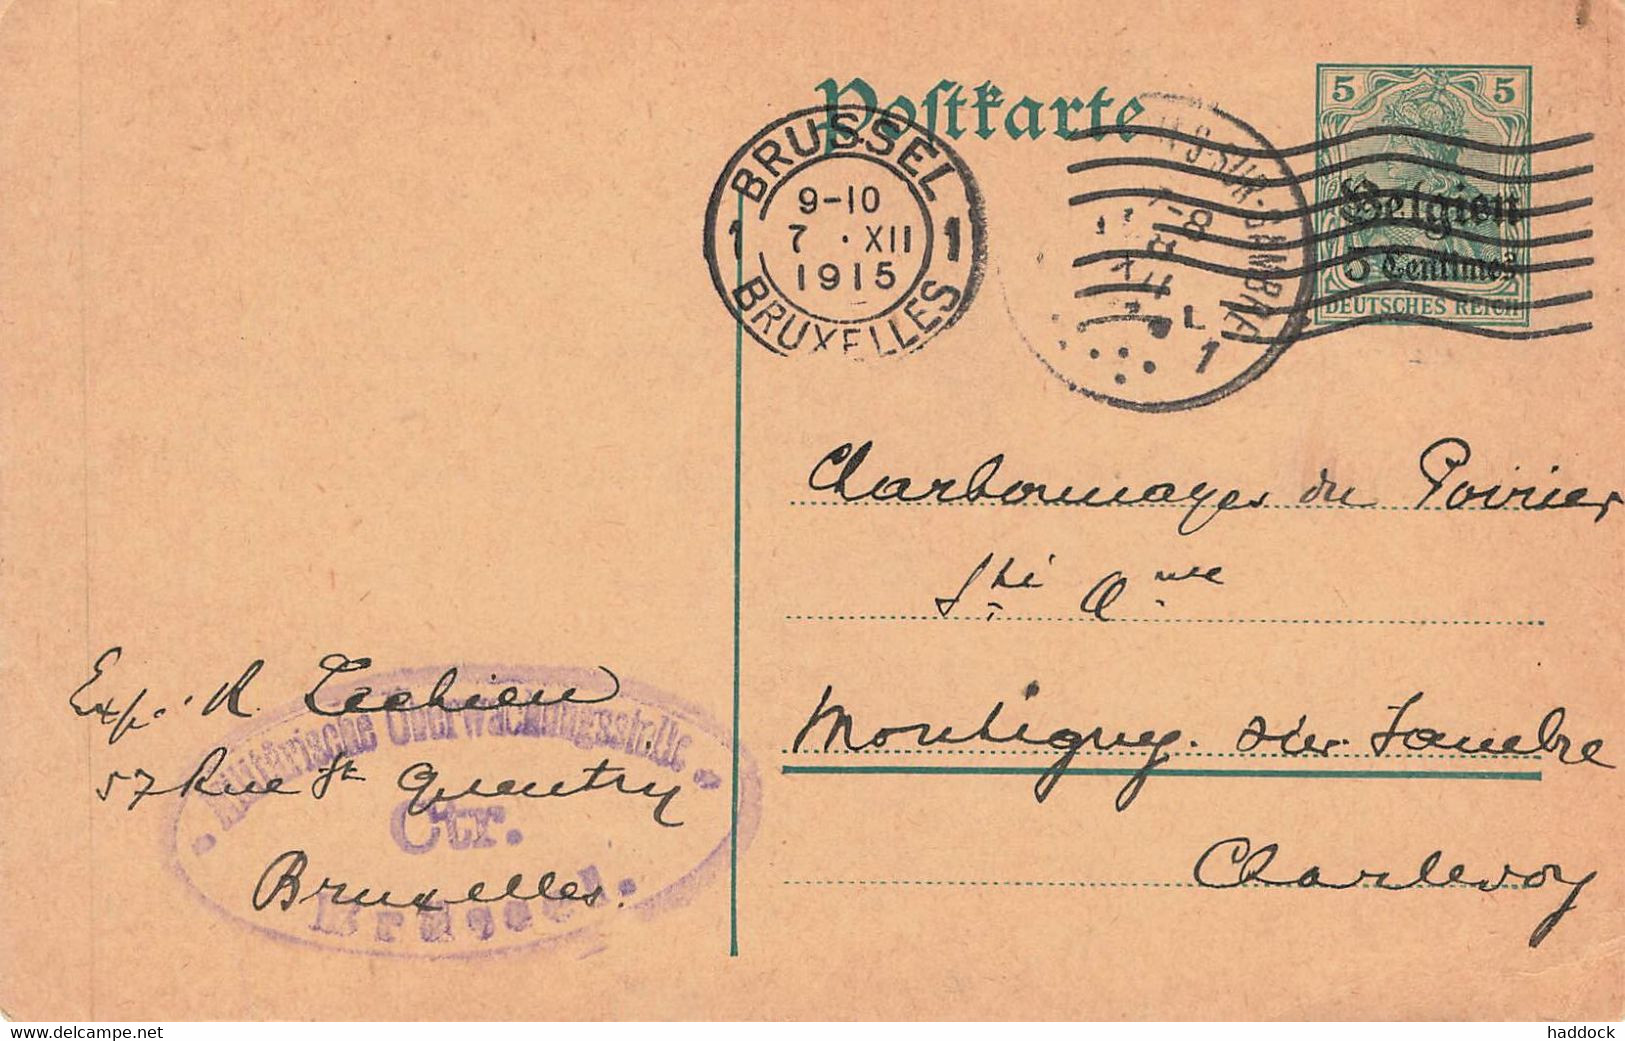 Postkarte
5 5
Belgien
5 Centimes
DEUTSCHES REICH
BRUSSEL
9-10
7 · XII
1915
BRUXELLES
1 1
S-SUR-SAMBRE
7-8
8
XII
1
Charbonnages du Poirier
Sté Ame
Montigny sur Sambre
Charleroy
Exp. R. Lechien
57 Rue St Quentin
Bruxelles.
Militärische Überwachungsstelle
Ctr.
Brüssel.
delcampe.net
haddock